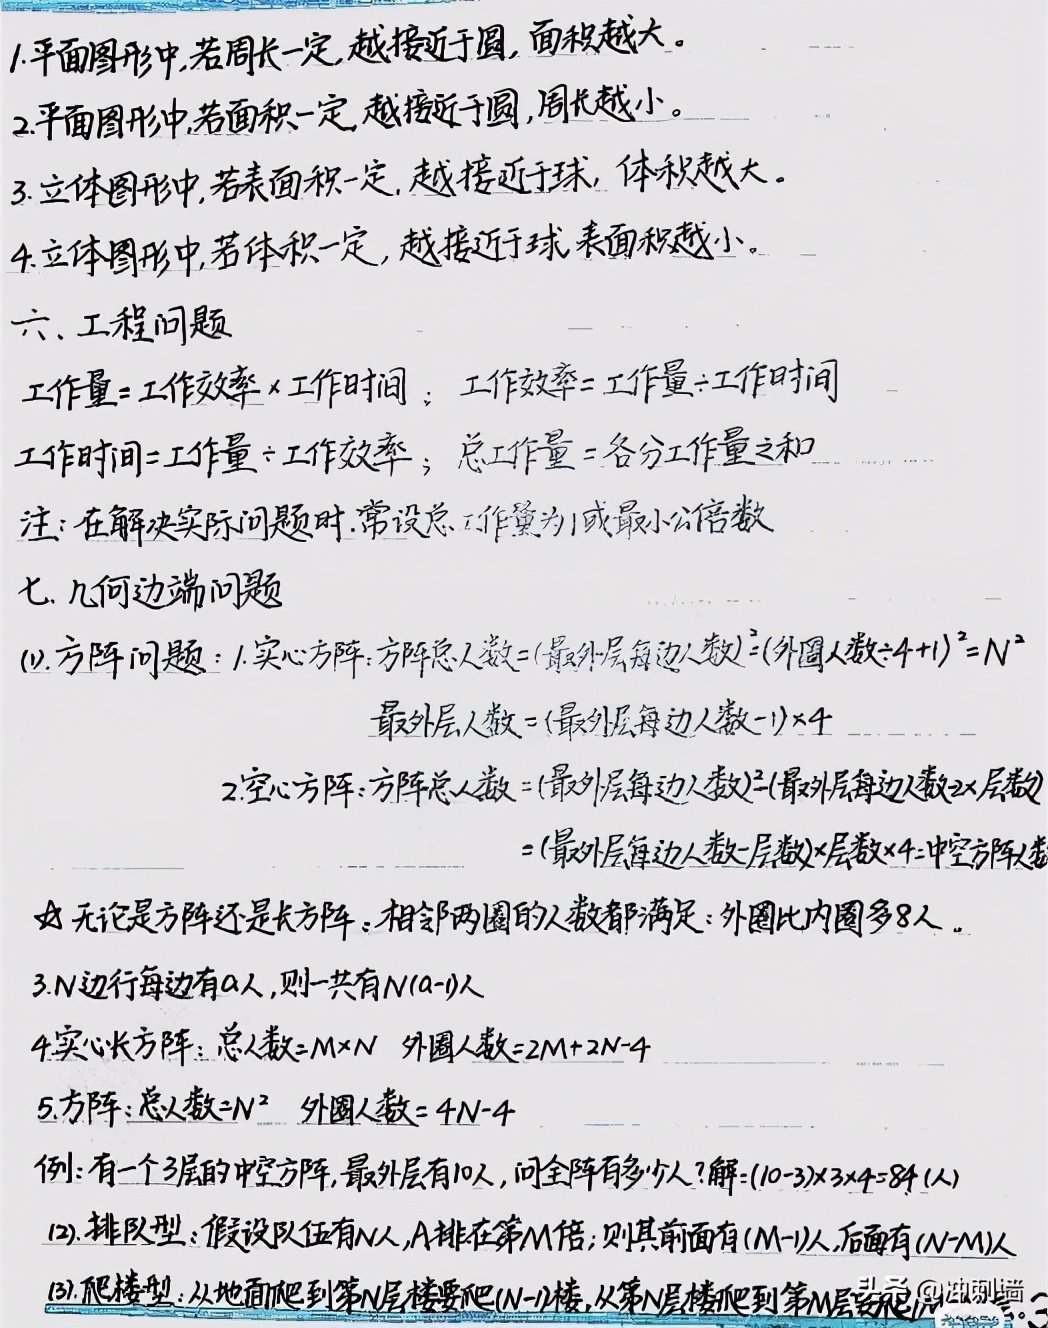 1.平面图形中,若周长一定,越接近于圆,面积越大。
2.平面图形中,若面积一定,越接近于圆,周长越小。
3.立体图形中,若表面积一定,越接近于球,体积越大。
4.立体图形中,若体积一定,越接近于球,表面积越小。
六、工程问题
工作量=工作效率×工作时间; 工作效率=工作量÷工作时间
工作时间=工作量÷工作效率; 总工作量=各分工作量之和
注:在解决实际问题时.常设总工作量为1或最小公倍数
七、几何边端问题
(1).方阵问题:1.实心方阵:方阵总人数=(最外层每边人数)²=(外圈人数÷4+1)²=N²
最外层人数=(最外层每边人数-1)×4
2.空心方阵:方阵总人数=(最外层每边人数)²-(最外层每边人数-2×层数)
=(最外层每边人数-层数)×层数×4=中空方阵人数
☆无论是方阵还是长方阵:相邻两圈的人数都满足:外圈比内圈多8人。
3.N边行每边有a人,则一共有N(a-1)人
4.实心长方阵:总人数=M×N 外圈人数=2M+2N-4
5.方阵:总人数=N² 外圈人数=4N-4
例:有一个3层的中空方阵,最外层有10人,问全阵有多少人?解:(10-3)×3×4=84(人)
(2).排队型:假设队伍有N人,A排在第M倍;则其前面有(M-1)人,后面有(N-M)人
(3).爬楼型:从地面爬到第N层楼要爬(N-1)楼,从第N层楼爬到第M层要爬
头条 @冲刺墙